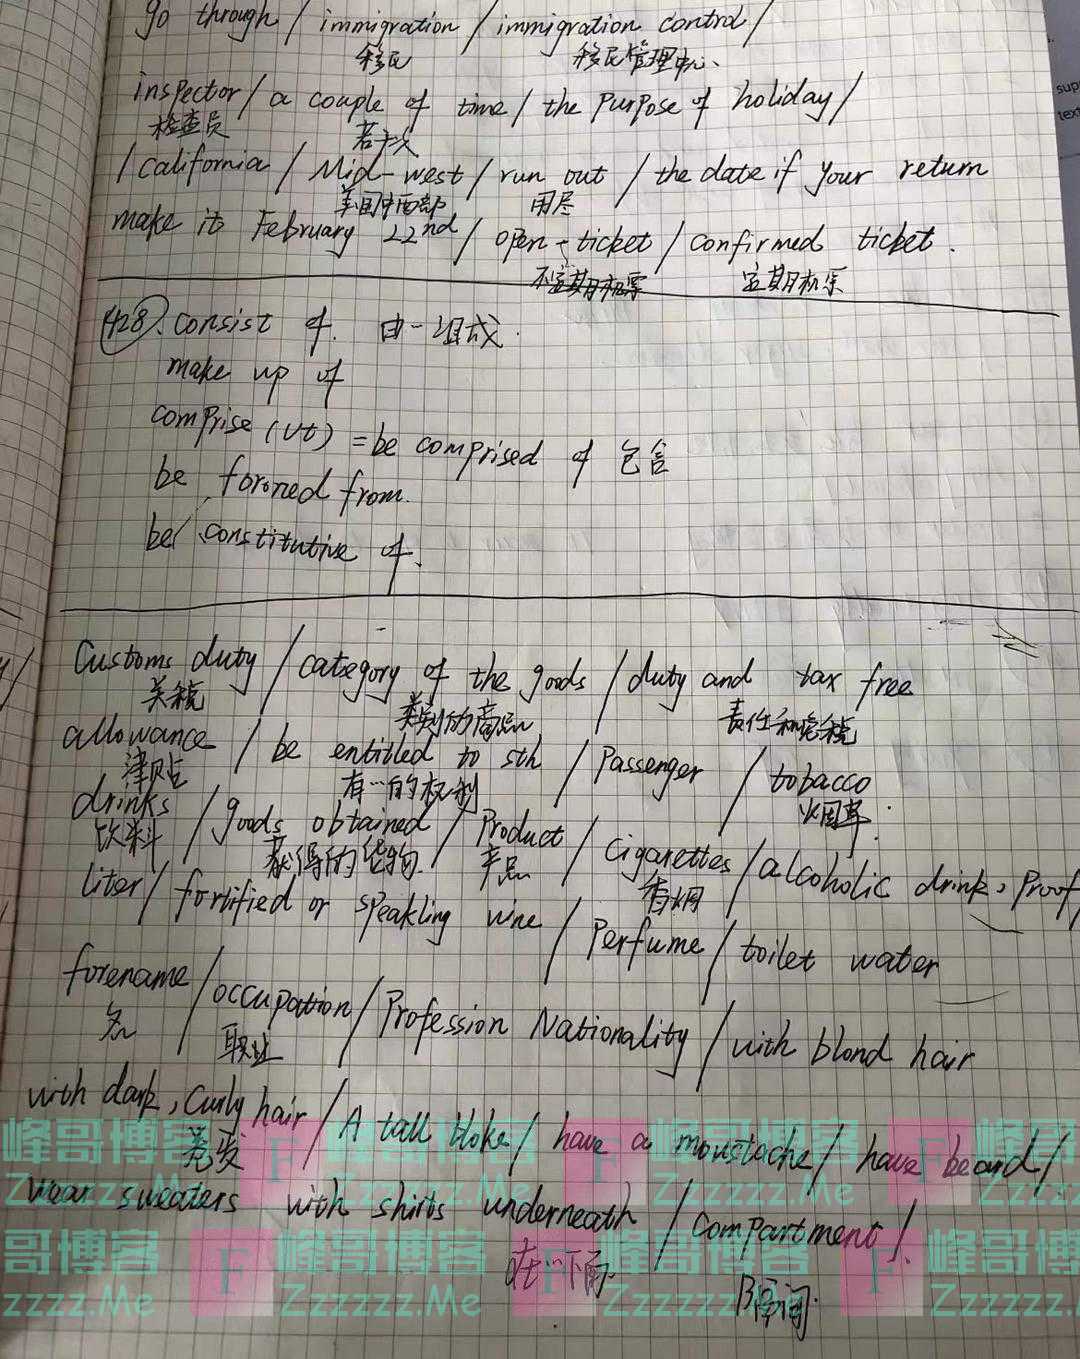 go through / immigration / immigration control /
移民 移民管理中心、
inspector / a couple of time / the purpose of holiday /
检查员 若干次
/ California / Mid-west / run out / the date if your return
美国中西部 用尽
make it February 22nd / open-ticket / confirmed ticket.
不定期机票 定期机票
428. consist of. 由…组成.
make up of
comprise (vt) = be comprised of 包含
be formed from.
be constitutive of.
Customs duty / category of the goods / duty and tax free
关税 类别的商品 责任和免税
allowance / be entitled to sth / Passenger / tobacco
津贴 有…的权利 烟草
drinks / goods obtained / Product / Cigarettes / alcoholic drink, Proof
饮料 获得的货物 产品 香烟
liter / fortified or speakling wine / Perfume / toilet water
forename / occupation / Profession Nationality / with blond hair
名 职业
with dark, curly hair / A tall bloke / have a moustache / have beard /
卷发
wear sweaters with shirts underneath / Compartment /.
在…下面. 隔间.
sup
text
峰哥博客
Zzzzzz.Me
F
峰哥博客
Zzzzzz.Me
F
峰哥博客
Zzzzzz.Me
哥博客
zzzzz.Me
F
峰哥博客
Zzzzzz.Me
F
峰哥博客
Zzzzzz.Me
F
峰哥博
Zzzzzz.M